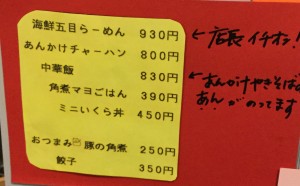 海鮮五目らーめん 930円
あんかけチャーハン 800円
中華飯 830円
角煮マヨごはん 390円
ミニいくら丼 450円
おつまみ 豚の角煮 250円
餃子 350円
←店長イチオシ!
←あんかけやきそば
あんがのってます